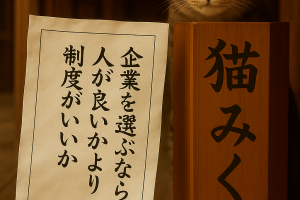 企業を選ぶなら
人が良いかより
制度がいいか
猫みく